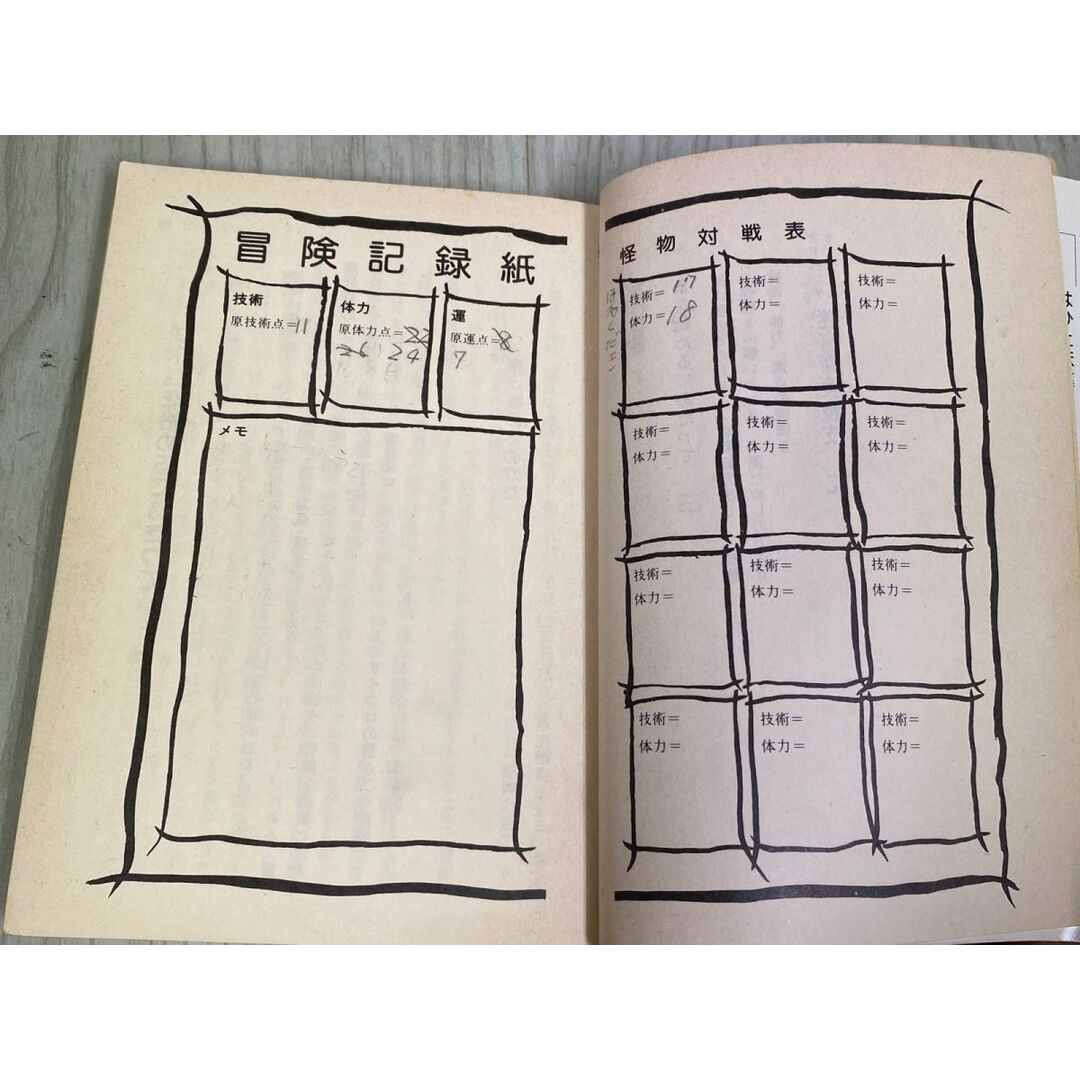 冒険記録紙
技術
原技術点=11
体力
原体力点=22
26 24
運
原運点=8
7
メモ
怪物対戦表
技術=17
体力=18
技術=
体力=
技術=
体力=
技術=
体力=
技術=
体力=
技術=
体力=
技術=
体力=
技術=
体力=
技術=
体力=
技術=
体力=
技術=
体力=
技術=
体力=